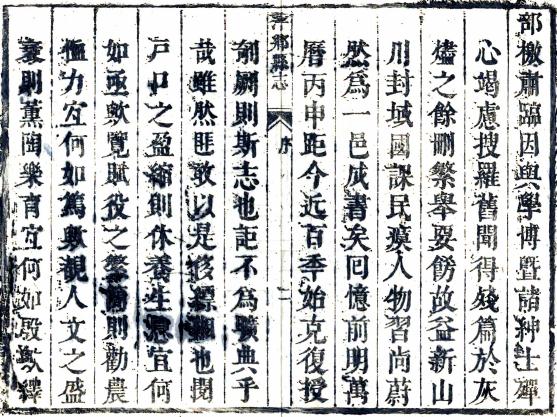 部檄肅臨因與學博暨諸紳士殫
心竭慮搜羅舊聞得殘篇於灰
燼之餘刪繁舉要飭故益新山
川封域國課民瘼人物習尚蔚
然為一邑成書矣回憶前明萬
曆丙申距今近百季始克復授
鄉縣志
序
剞劂則斯志也詎不為曠典乎
哉雖然匪敢以是侈縹緗也閱
戶口之盈縮則休養生息宜何
如亟歟覽賦役之繁則勸農
力宜何如篤歟觀人文之盛
衰則薰陶樂育宜何如殷歟繹